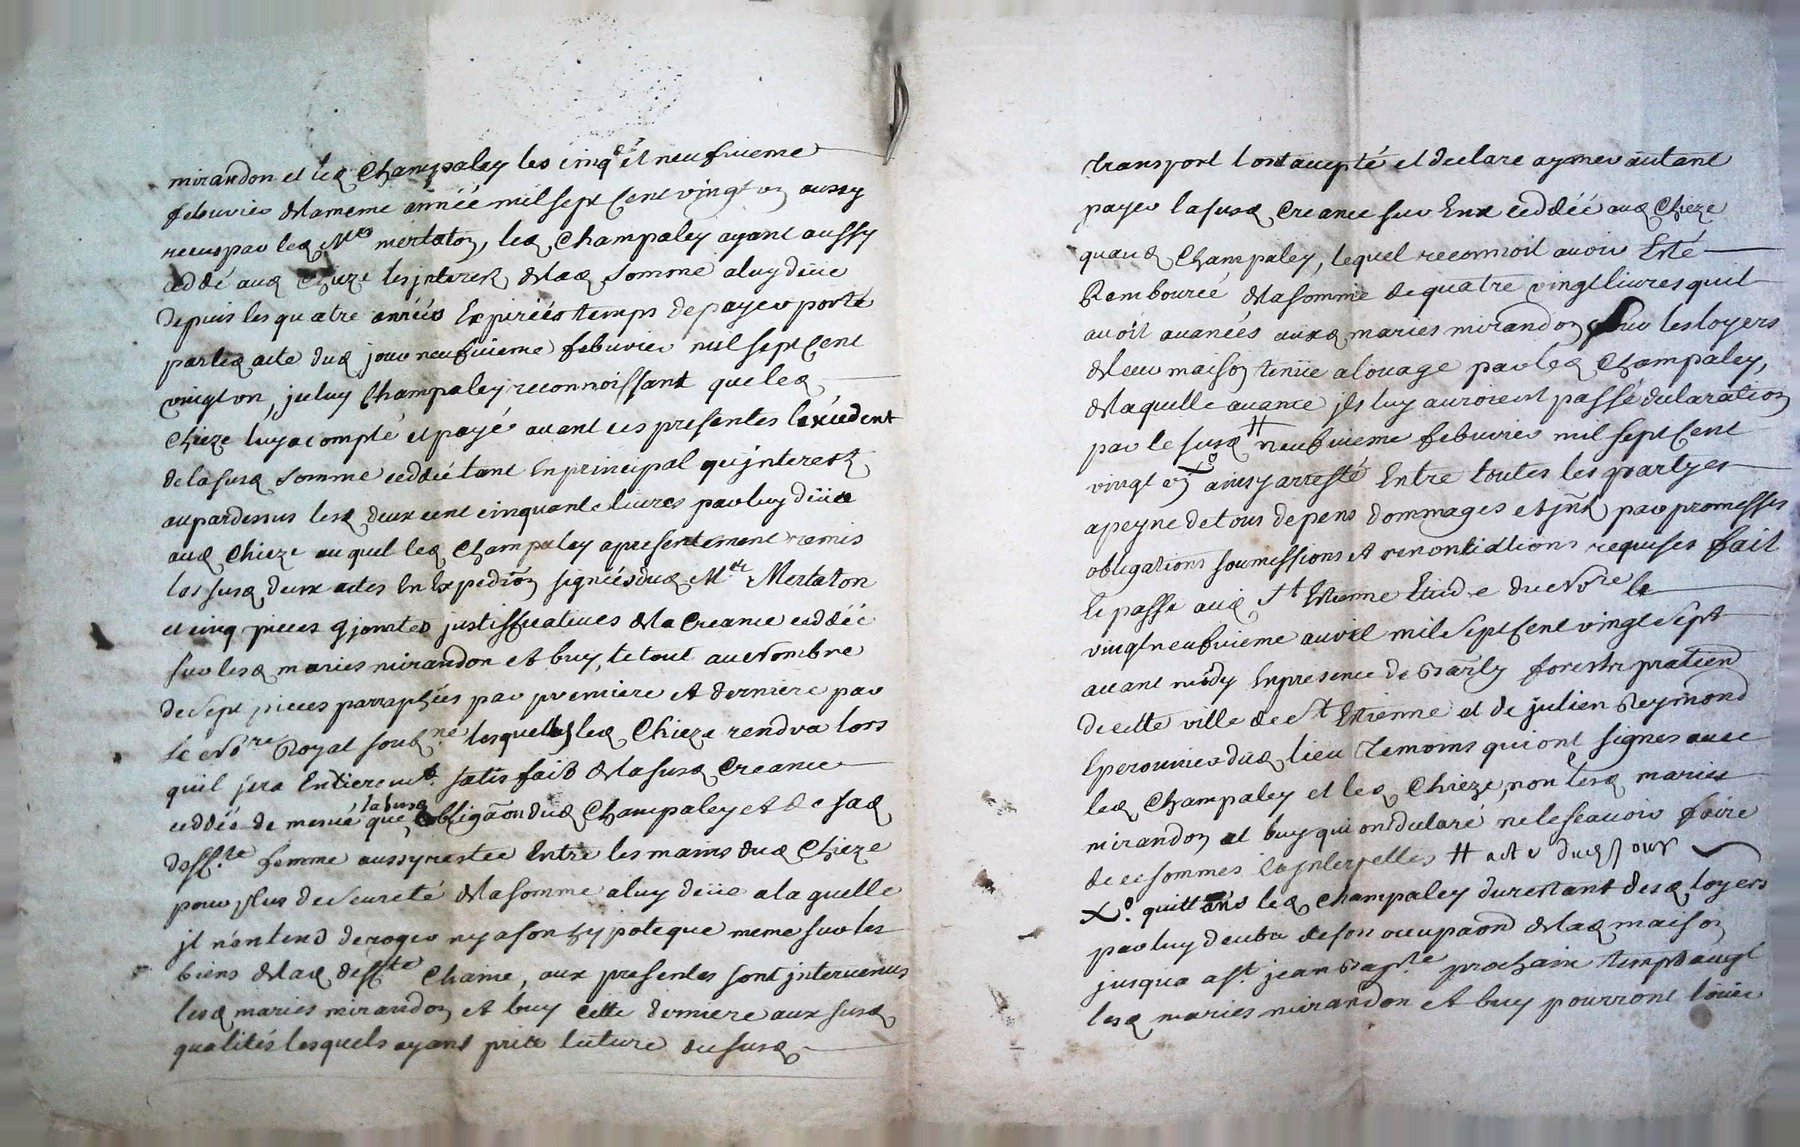 mirandon et led Champaley les cinq.e et neufvieme
febuvrier de la meme année mil sept cent vingt un aussy
receus par led Me mertaton, led Champaley ayant aussy
ceddé aud Chieze les jnterets de lad somme a luy düe
depuis les quatre années Expirées temps de payer porté
par led acte dud jour neufvieme febuvrier mil sept cent
vingt un, jceluy Champaley reconnoissant que led
Chieze luy a compté et payé avant ces presentes l'excedent
de la susd somme ceddée tant En principal qu'jnterest
au par dessus lesd deux cent cinquante livres par luy düe
aud Chieze au quel led Champaley a presentement remis
les susd deux actes En Expedi͠on signées dud M.e Mertaton
et cinq pieces cjointes justifficatives de la Creance ceddée
sur lesd maries mirandon et buy, le tout au Nombre
de sept pieces parraphées par premiere et derniere par
le No.re Royal sous.né lesquelles led Chieze rendra lors
quil sera Entierem.t satisfait de la susd Creance
ceddée de meme que la susd obliga͠on dud Champaley et de sad
deff.te femme aussy restée Entre les mains dud Chieze
pour plus de seureté de la somme a luy düe a la quelle
jl n'entend deroger ny a son hypoteque meme sur les
biens de lad deff.te Chaine, aux presentes sont jntervenus
lesd maries mirandon et buy cette derniere aux susd
qualités lesquels ayant prise lecture du susd
transport l'ont accepté et declare aymer autant
payer la susd Creance sur Eux ceddée aud Chieze
quaud Champaley, lequel reconnoit avoir Eté
Rembourcé de la somme de quatre vingt livres quil
avoit avancés auxd maries mirandon pour les loyers
de leur maison tenüe a louage par led Champaley,
de laquelle avance jls luy auroient passé declaration
par le susd # neufvieme febuvrier mil sept cent
vingt un X.o ainsy arresté Entre toutes les partyes
a peyne de tous depens dommages et jnt par promesses
obligations soumissions et renontiations requises fait
et passé aud S.t Etienne Etude du No.re le
vingt neufvieme avril mil sept cent vingt sept
avant midy En presence de Barly forestr praticien
de cette ville de S.t Etienne et de julien Reymond
Eperonnier dud lieu temoins qui ont signes avec
led Champaley et led Chieze, non lesd maries
mirandon et buy qui ont declaré ne le scavoir faire
de ce sommes et jnterpelles # acte dud jour
X.o quittans led Champaley du restant desd loyers
par luy deubs de son occupa͠on de lad maison
jusqu'a a S.t jean Bapt.e prochain temps auql
lesd maries mirandon et buy pourront loüer